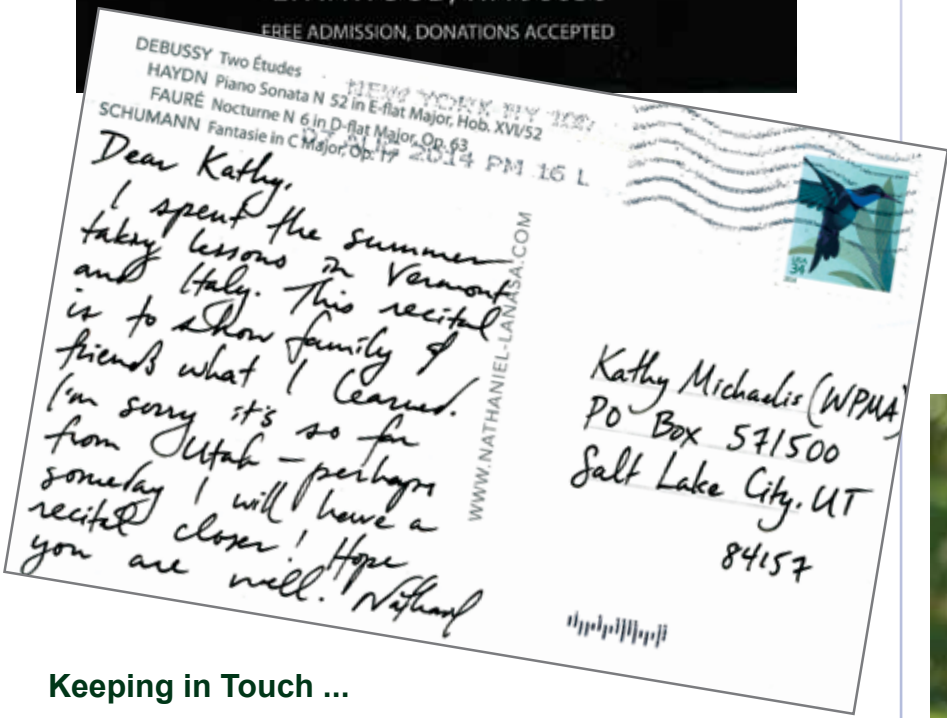 FREE ADMISSION, DONATIONS ACCEPTED
DEBUSSY Two Études
HAYDN Piano Sonata N 52 in E-flat Major, Hob. XVI/52
FAURÉ Nocturne N 6 in D-flat Major, Op. 63
SCHUMANN Fantasie in C Major, Op. 17
NEW YORK NY
2014 PM 16 L
USA
34
Dear Kathy,
I spent the summer
taking lessons in Vermont
and Italy. This recital
is to show family &
friends what I learned.
I'm sorry it's so far
from Utah – perhaps
someday I will have a
recital closer! Hope
you are well. Nathaniel
WWW.NATHANIEL-LANASA.COM
Kathy Michaelis (WPMA)
PO Box 571500
Salt Lake City, UT
84157
Keeping in Touch ...